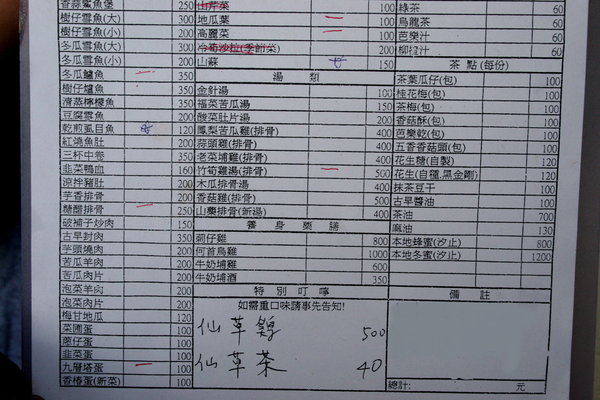 香蒜鯊魚堡 250
樹仔雪魚(大) 300
樹仔雪魚(小) 200
冬瓜雪魚(大) 300
冬瓜雪魚(小) 200
冬瓜鱸魚 350
樹仔爐魚 350
清蒸檸檬魚 350
豆腐雪魚 200
乾煎虱目魚 120
紅燒魚肚 150
三杯中卷 350
韭菜鴨血 160
涼拌豬肚 200
芋香排骨 200
糖醋排骨 250
破補子炒肉 150
古早封肉 350
芋頭燒肉 200
苦瓜羊肉 200
苦瓜肉片 200
泡菜羊肉 200
泡菜肉片 200
梅甘地瓜 120
菜圃蛋 100
蔭仔蛋 100
韭菜蛋 100
九層塔蛋 100
香椿蛋(新菜) 100
山芹菜 100
地瓜葉 100
高麗菜 100
冷筍沙拉(季節菜)
山蘇 150
湯 類
金針湯 100
福菜苦瓜湯 200
酸菜肚片湯 200
鳳梨苦瓜雞(排骨) 400
蒜頭雞(排骨) 400
老菜埔雞(排骨) 400
竹筍雞湯(排骨) 500
木瓜排骨湯 400
香菇雞(排骨) 400
山藥排骨(新湯) 400
養 身 藥 膳
莿仔雞 800
何首烏雞 1000
牛奶埔雞 600
牛奶埔酒 350
特 別 叮 嚀
如需重口味請事先告知!
仙草雞 500
仙草茶 40
綠茶 60
烏龍茶 60
芭樂汁 60
柳橙汁 60
茶 點 (每份)
茶葉瓜仔(包) 100
桂花梅(包) 100
茶梅(包) 100
香菇酥(包) 100
芭樂乾(包) 100
五香香菇頭(包) 100
花生糖(自製) 100
花生(自種.黑金剛) 120
抹茶豆干 100
古早醬油 100
茶油 700
麻油 130
本地蜂蜜(汐止) 800
本地冬蜜(汐止) 1200
備 註
總計: 元